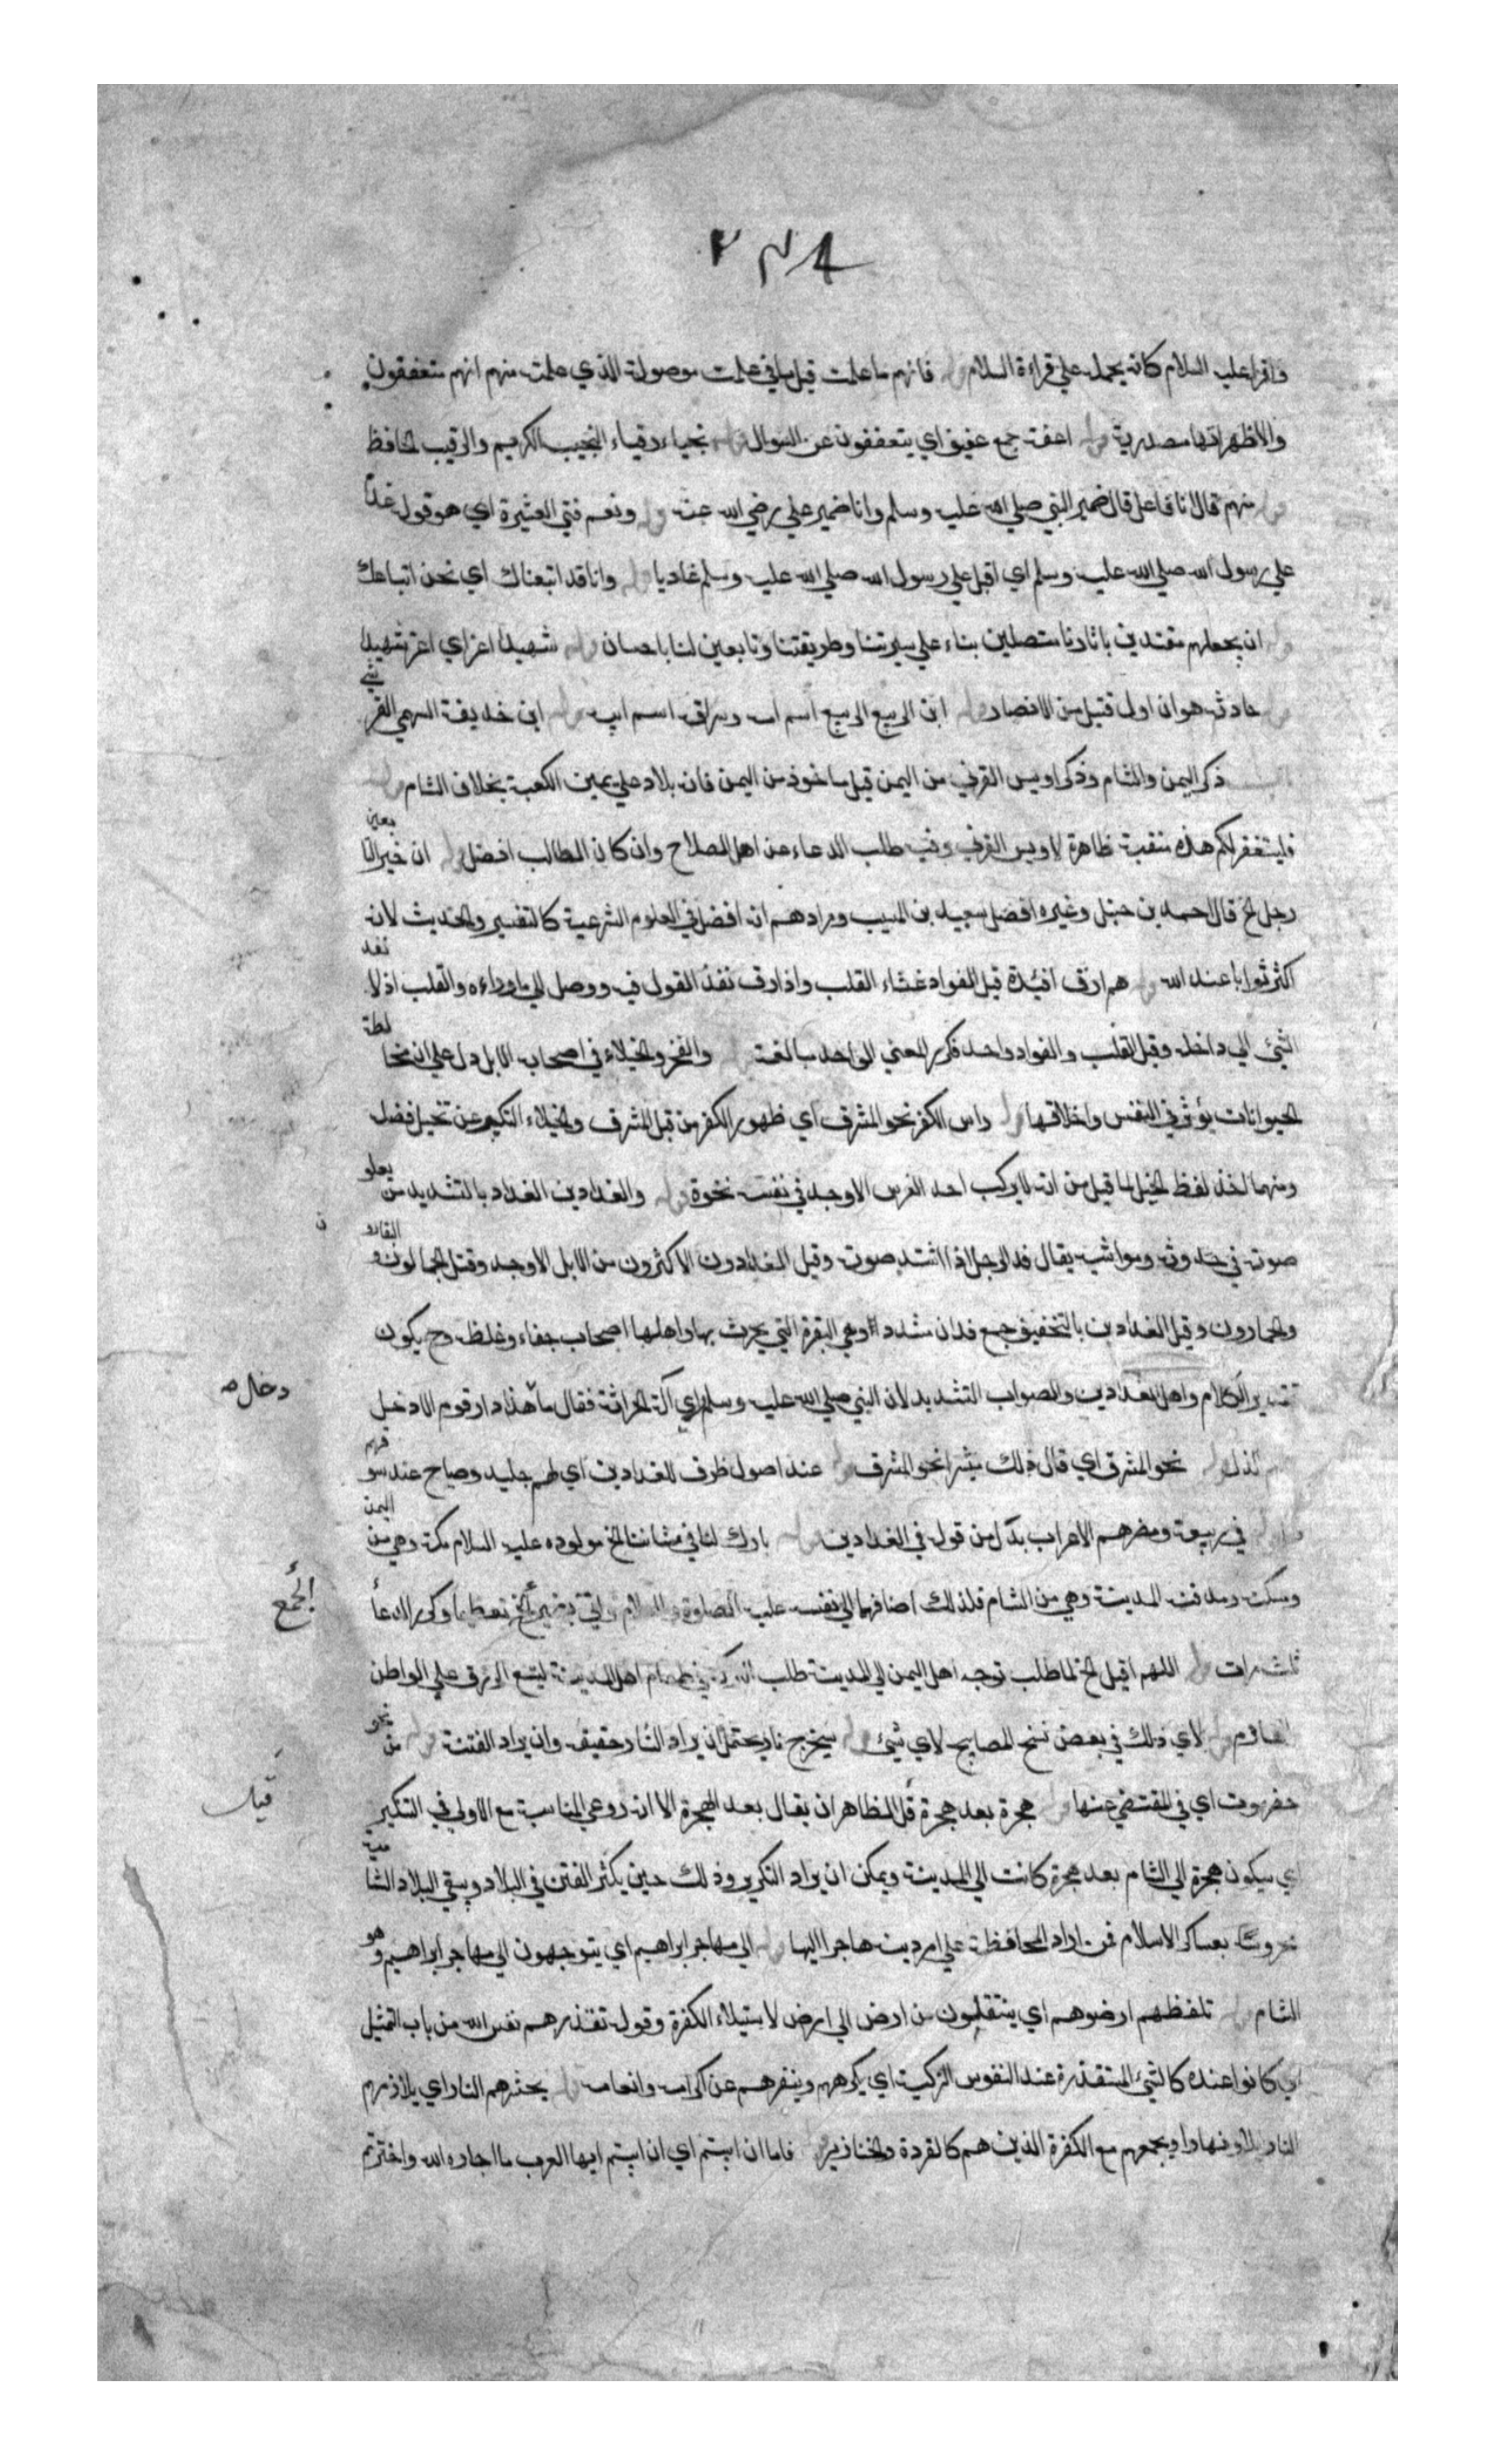 واقراعليه السلام كانه يحمله على قراءة السلام فانهم ما علمت قيل ما في علمت موصولة الذي علمته منهم انهم متعففون
والاظهر انها مصدرية اعفة جمع عفيف اي يتعففون عن السوال نجباء رقباء النجيب الكريم والرقيب الحافظ
منهم قال انا فاعل قال ضمير النبي صلي الله عليه وسلم وانا ضمير علي رضي الله عنه ونعم فتي العشيرة اي هو قوله غدا
علي رسول الله صلي الله عليه وسلم اي اقبل علي رسول الله صلي الله عليه وسلم غاديا وانا قد اتبعناك اي نحن اتباعك
ان يجعلهم مقتدين باثارنا متصلين بناء علي سيرتنا وطريقتنا وتابعين لنا باحسان شهيدا اعز اي اعز شهيدا
حارثة هو ان اول قتيل من الانصار ابن الربيع الربيع اسم امه وسراقة اسم ابيه ابن حذيفة السهمي القرشي
ذكر اليمن والشام وذكر اويس القرني من اليمن قيل ماخوذ من اليمن فان بلاده علي يمين الكعبة بخلاف الشام
فليستغفر لكم هذه منقبة ظاهرة لاويس القرني وفيه طلب الدعاء من اهل الصلاح وان كان الطالب افضل ان خير التابعين
رجل الخ قال احمد بن حنبل وغيره افضل سعيد بن المسيب ومرادهم انه افضل في العلوم الشرعية كالتفسير والحديث لانه
اكثر ثوابا عند الله هم ارق افئدة قيل الفواد غشاء القلب واذا رق نفذ القول فيه ووصل الي ما وراءه والقلب اذ لا نفذ
الشيء الي داخله وقيل القلب والفواد واحد فكرر المعني الواحد مبالغة والفخر والخيلاء في اصحاب الابل دل علي ان مخالطة
الحيوانات يؤثر في النفس واخلاقها راس الكفر نحو المشرق اي ظهور الكفر من قبل المشرق والخيلاء التكبر عن تخيل فضل
ومنها اخذ لفظ الخيل لما قيل من انه لا يركب احد الفرس الا وجد في نفسه نخوة والفدادين الفداد بالتشديد من يعلو
صوته في حدوثه ومواشيه يقال فد الرجل اذا اشتد صوته وقيل الفدادون الاكثرون من الابل الاوجد وقيل الجمالون والبقارون
والحمارون وقيل الفدادين بالتخفيف جمع فدان مشددا وهي البقرة التي يحرث بها واهلها اصحاب جفاء وغلظ وح يكون
تقدير الكلام واهل الفدادين والصواب التشديد لان النبي صلي الله عليه وسلم راي الة الحراثة فقال ما هذا دار قوم الا دخل
دخال صه
الذل نحو المشرق اي قال ذلك مشيرا نحو المشرق عند اصول ظرف للفدادين اي لهم جلبة وصياح عند سوقهم
في ربيعة ومضر هم الاعراب بدل من قوله في الفدادين بارك لنا في شامنا الخ مولوده عليه السلام مكة وهي من اليمن
ومسكنه ومدفنه المدينة وهي من الشام فلذلك اضافهما الي نفسه عليه الصلوة والسلام واتي بضمير الجمع تعظيما وكرر الدعا
الجمع
ثلث مرات اللهم اقبل الخ لما طلب توجه اهل اليمن الي المدينة طلب البركة في طعام اهل المدينة ليتسع الرزق علي المواطن
القادم لاي ذلك في بعض نسخ المصابيح لاي شيء سيخرج نار يحتمل ان يراد النار حقيقة وان يراد الفتنة من نحو
حضرموت اي في المقتضي عنها هجرة بعد هجرة قيل الظاهر ان يقال بعد الهجرة الا انه روعي المناسبة مع الاولي في التنكير
قيل
اي سيكون هجرة الي الشام بعد هجرة كانت الي المدينة ويمكن ان يراد التكرير وذلك حين يكثر الفتن في البلاد ويبقي البلاد الشامية
محروسة بعساكر الاسلام فمن اراد المحافظة علي امر دينه هاجر اليها الي مهاجر ابراهيم اي يتوجهون الي مهاجر ابراهيم وهو
الشام تلفظهم ارضوهم اي ينتقلون من ارض الي ارض لاستيلاء الكفرة وقوله تقذرهم نفس الله من باب التمثيل
اي كانوا عنده كالشيء المتقذرة عند النفوس الزكية اي يكرههم وينفرهم عن اكرامه وانعامه يحشرهم النار اي يلازمهم
النار ليلا ونهارا ويجمعهم مع الكفرة الذين هم كالقردة والخنازير فاما ان ابيتم اي ان ابيتم ايها العرب ما اختاره الله واخترتم